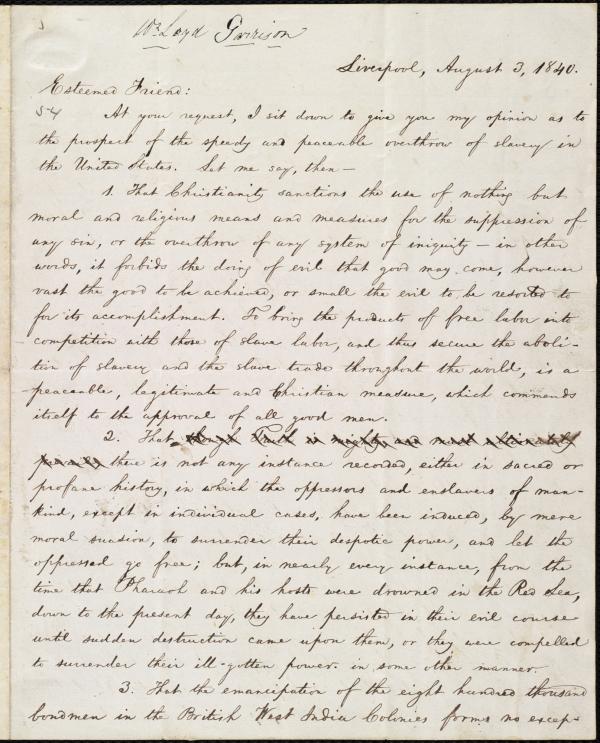 Wm Loyd Garrison
Liverpool, August 3, 1840.
Esteemed Friend:
54 At your request, I sit down to give you my opinion as to
the prospect of the speedy and peaceable overthrow of slavery in
the United States. Let me say, then—
1. That Christianity sanctions the use of nothing but
moral and religious means and measures for the suppression of
any sin, or the overthrow of any system of iniquity — in other
words, it forbids the doing of evil that good may come, however
vast the good to be achieved, or small the evil to be resorted to
for its accomplishment. To bring the products of free labor into
competition with those of slave labor, and thus secure the aboli-
tion of slavery and the slave trade throughout the world, is a
peaceable, legitimate and Christian measure, which commends
itself to the approval of all good men.
2. That, though Truth is mighty, and must ultimately
prevail, there is not any instance recorded, either in sacred or
profane history, in which the oppressors and enslavers of man-
kind, except in individual cases, have been induced, by mere
moral suasion, to surrender their despotic power, and let the
oppressed go free; but, in nearly every instance, from the
time that Pharaoh and his hosts were drowned in the Red Sea,
down to the present day, they have persisted in their evil course
until sudden destruction came upon them, or they were compelled
to surrender their ill-gotten power in some other manner.
3. That the emancipation of the eight hundred thousand
bondmen in the British West India Colonies forms no excep-